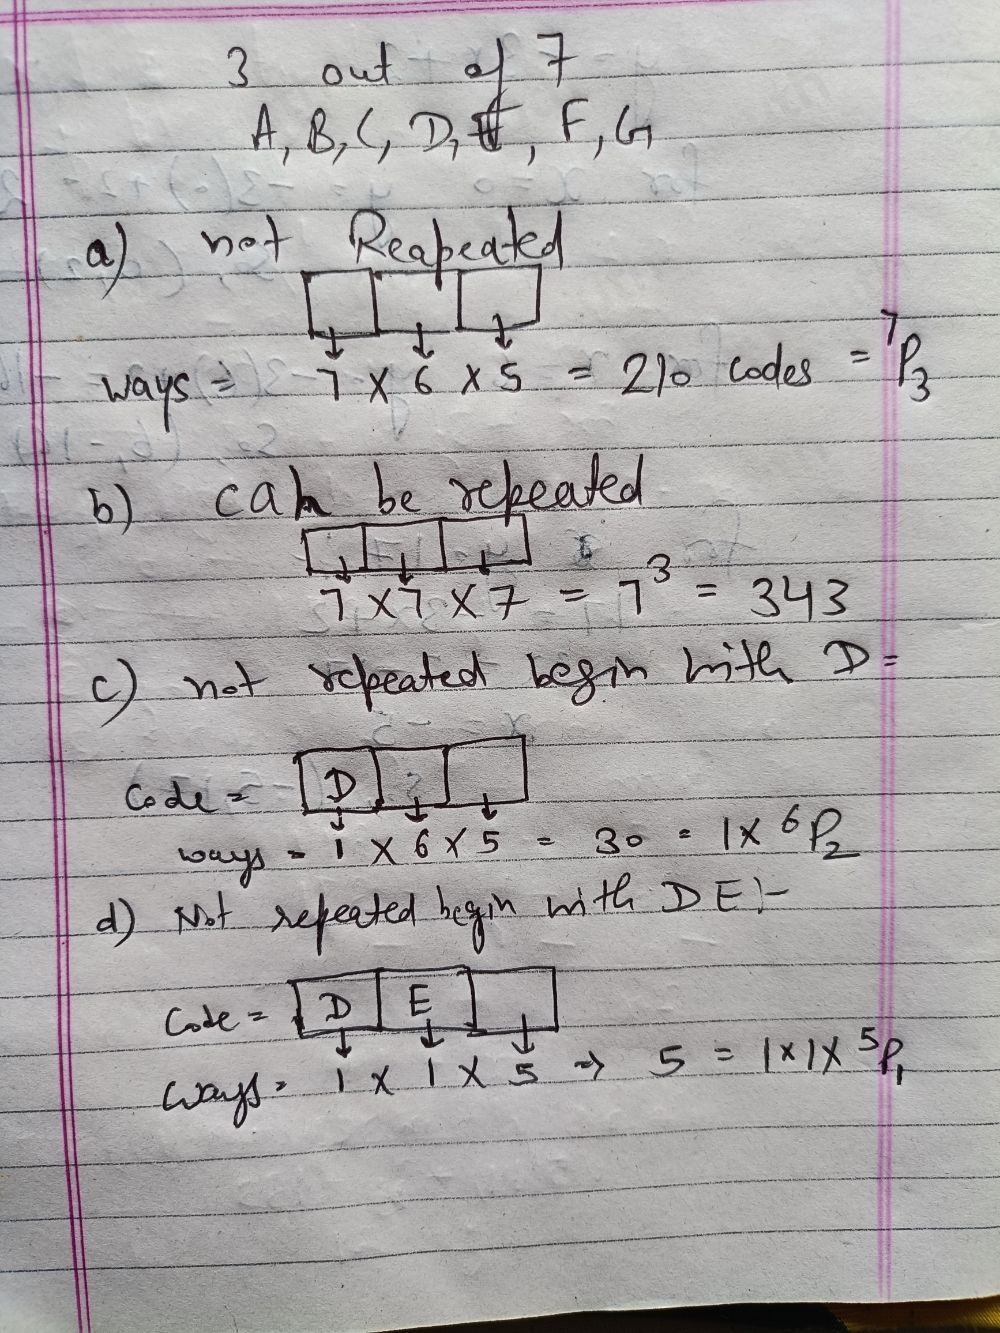 3 out of 7
A, B, C, D, E, F, G
a) not Reapeated
ways = 7 X 6 X 5 = 210 codes = ⁷P₃
b) can be repeated
7 X 7 X 7 = 7³ = 343
c) not repeated begin with D =
Code = D
ways = 1 X 6 X 5 = 30 = 1X ⁶P₂
d) Not repeated begin with D E :-
Code = D E
Ways = 1 X 1 X 5 => 5 = 1X1X ⁵P₁